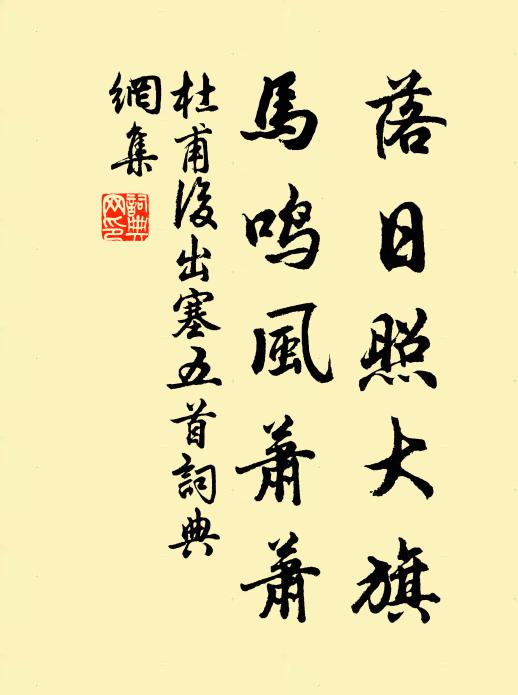 落日照大旗
馬鳴風蕭蕭
杜甫後出塞五首詞典
網集
詞典
网印